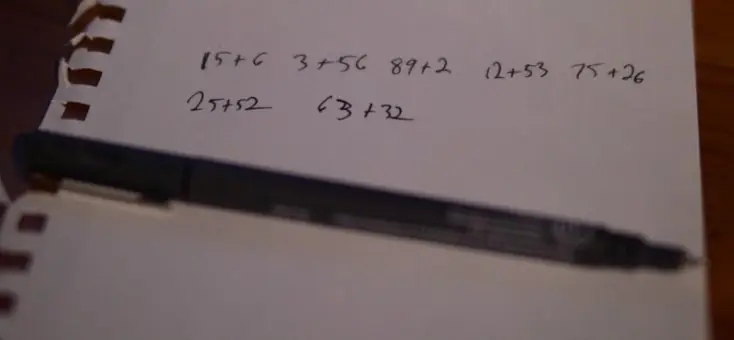 15+6 3+56 89+2 12+53 75+26
25+52 63+32